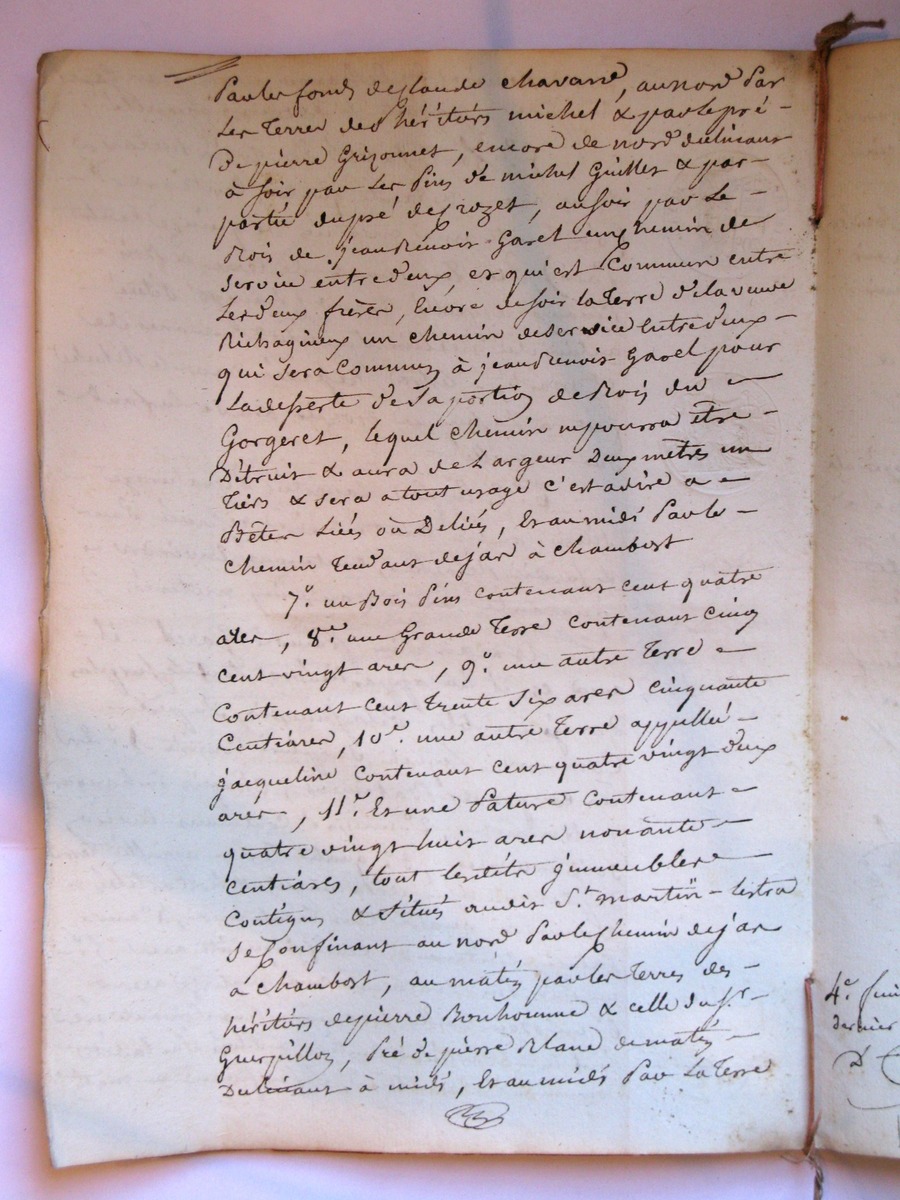 par les fonds de Claude Chavanne, au nord par
Les Terres des héritiers michel & par le pré -
De pierre Grizonnet, encore de nord declinant
à soir par Les Pins de michel Guillet & par -
partie du pré de Crozet, au soir par Le -
Bois de jean Benoit Garel un chemin de
service entre deux, et qui est Commun entre
Les deux frères, Encore de soir la Terre de la veuve
un chemin de service entre deux -
qui sera Commun à jean Benoit Garel pour
La desserte de Sa portion de Bois du -
Gorgeret, lequel chemin ne pourra être -
Détruit & aura de Largeur Deux mètres un
Tiers & sera a tout usage c'est a dire a -
Bêtes Liées ou Deliées, Et au midi Par le -
Chemin Tendant de jar à Chambost
7.° un Bois Pins contenant cent quatre
ares, 8.° une Grande Terre contenant cinq
cent vingt ares, 9.° une autre Terre -
Contenant cent Trente Six ares cinquante
Centiares, 10.° une autre Terre appellée -
jacqueline contenant cent quatre vingt deux
ares, 11.° Et une Pature Contenant -
quatre vingt huit ares nonante -
centiares, tout lesdits jmmeubles
Contigus & Situés audit S.t martin - lestra
Se Confinant au nord Par le Chemin de jar
a Chambost, au matin par les Terres des -
héritiers de pierre Bonhomme & celle du s.r -
Guerpillon, Pré de pierre Blanc de matin -
Declinant à midi, Et au midi Par La Terre
4.e
dernier